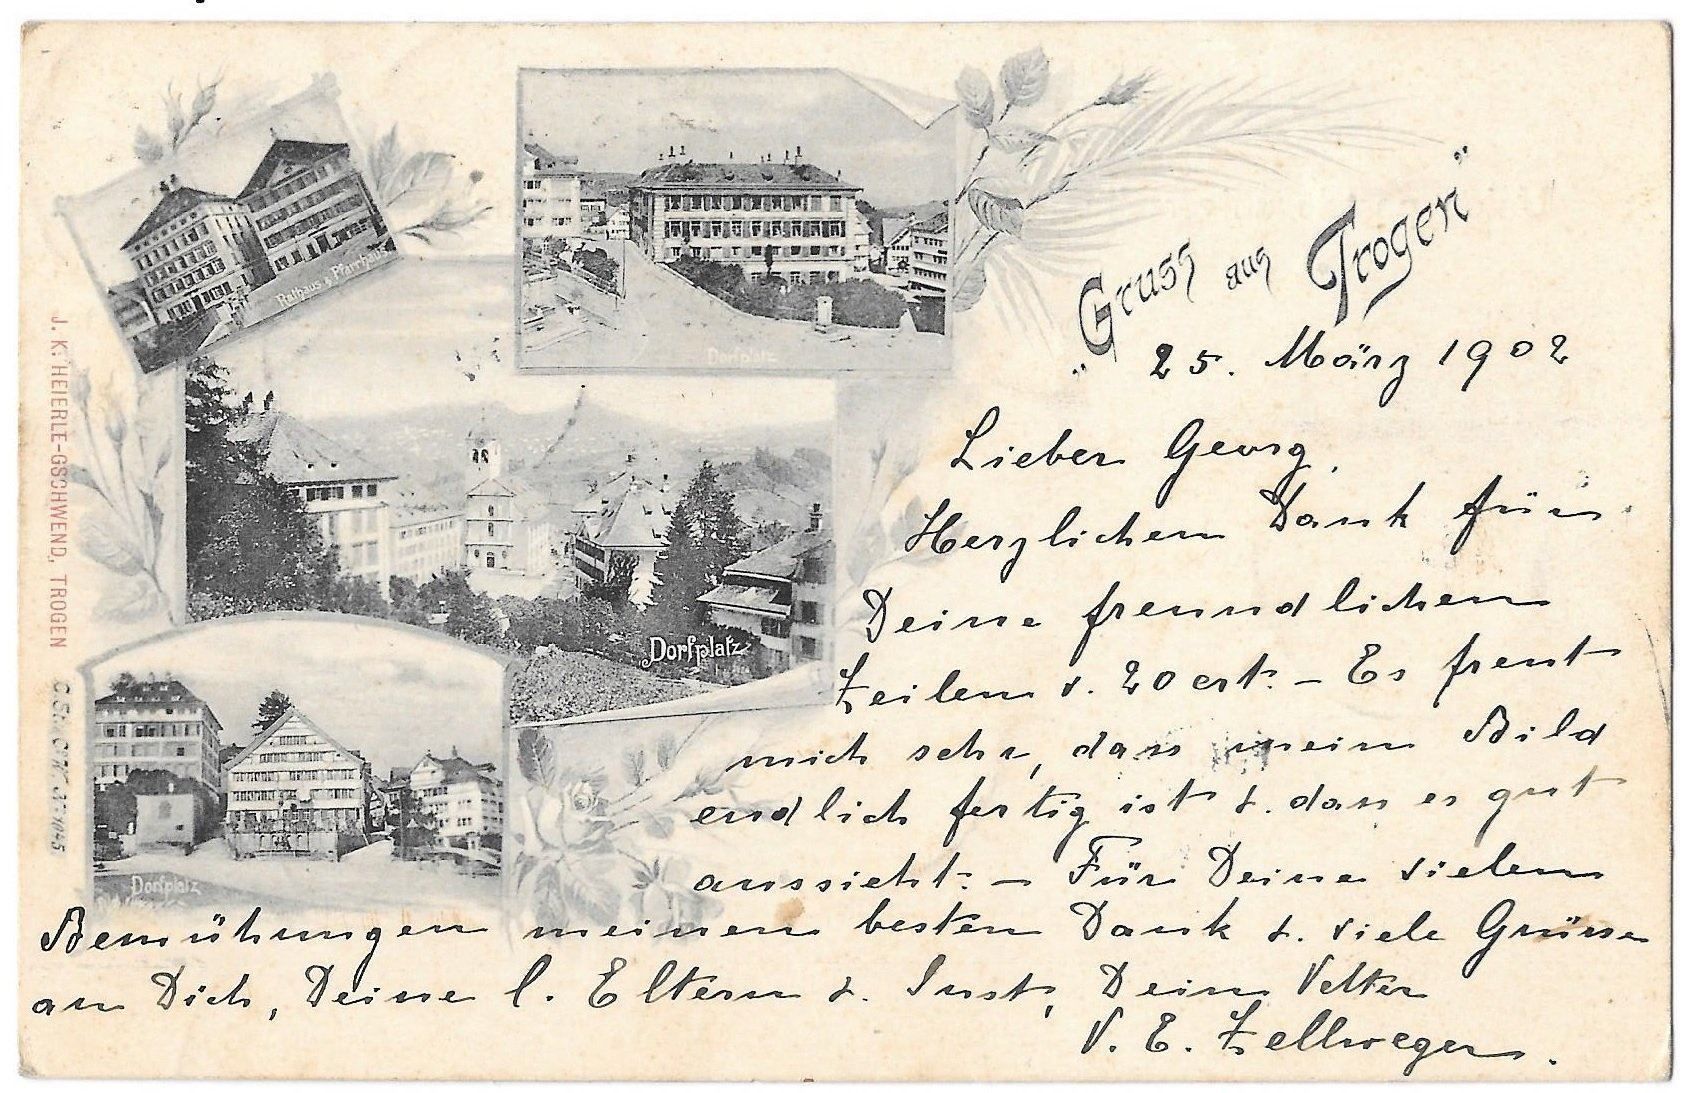 Rathaus & Pfarrhaus
Dorfplatz
„Gruss aus Trogen"
25. März 1902
Lieber Georg,
Herzlichen Dank für
Deine freundlichen
Zeilen v. 20 crt. – Es freut
mich sehr, dass mein Bild
endlich fertig ist & dass es gut
aussieht. – Für Deine vielen
Bemühungen meinen besten Dank & viele Grüsse
an Dich, Deine l. Eltern & Gust, Dein Vetter
V. E. Zellweger.
Dorfplatz
Dorfplatz
J. K. HEIERLE-GSCHWEND, TROGEN